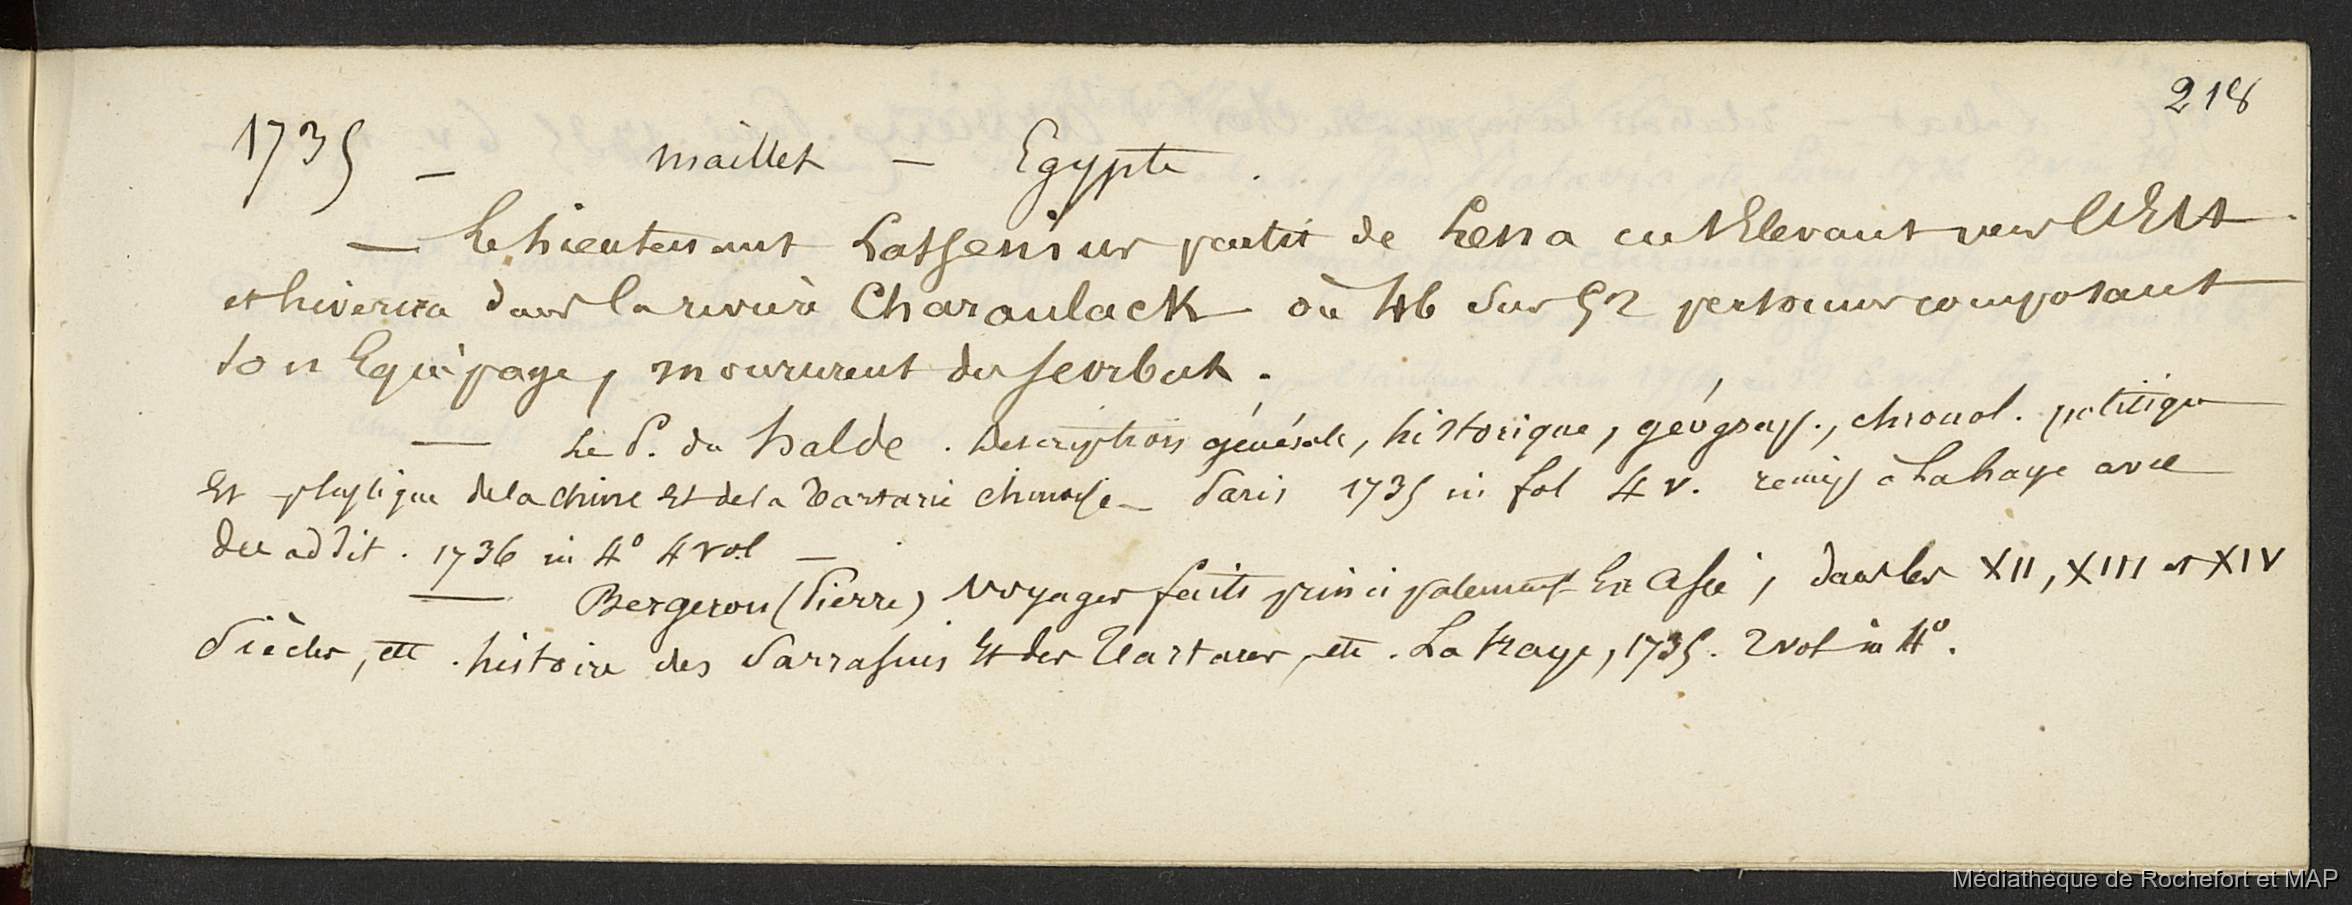 218
1735 — Maillet — Egypte.
— Le Lieutenant Lassenius partit de Lena en s'élevant vers l'Est
et hiverna dans la rivière Charaulack — où 46 sur 52 personnes composant
son Equipage, moururent du scorbut.
— Le P. du halde. Description générale, historique, géograp., chronol. politique
Et physique de la chine Et de la Tartarie chinoise — Paris 1735 in fol 4 v. réimp à Lahaye avec
des addit. 1736 in 4° 4 vol —
— Bergeron (Pierre) Voyages faits principalement En Asie, dans les XII, XIII et XIV
Siècles, etc. histoire des Sarrasins Et des Tartares, etc. La haye, 1735. 2 vol in 4°.
Médiathèque de Rochefort et MAP